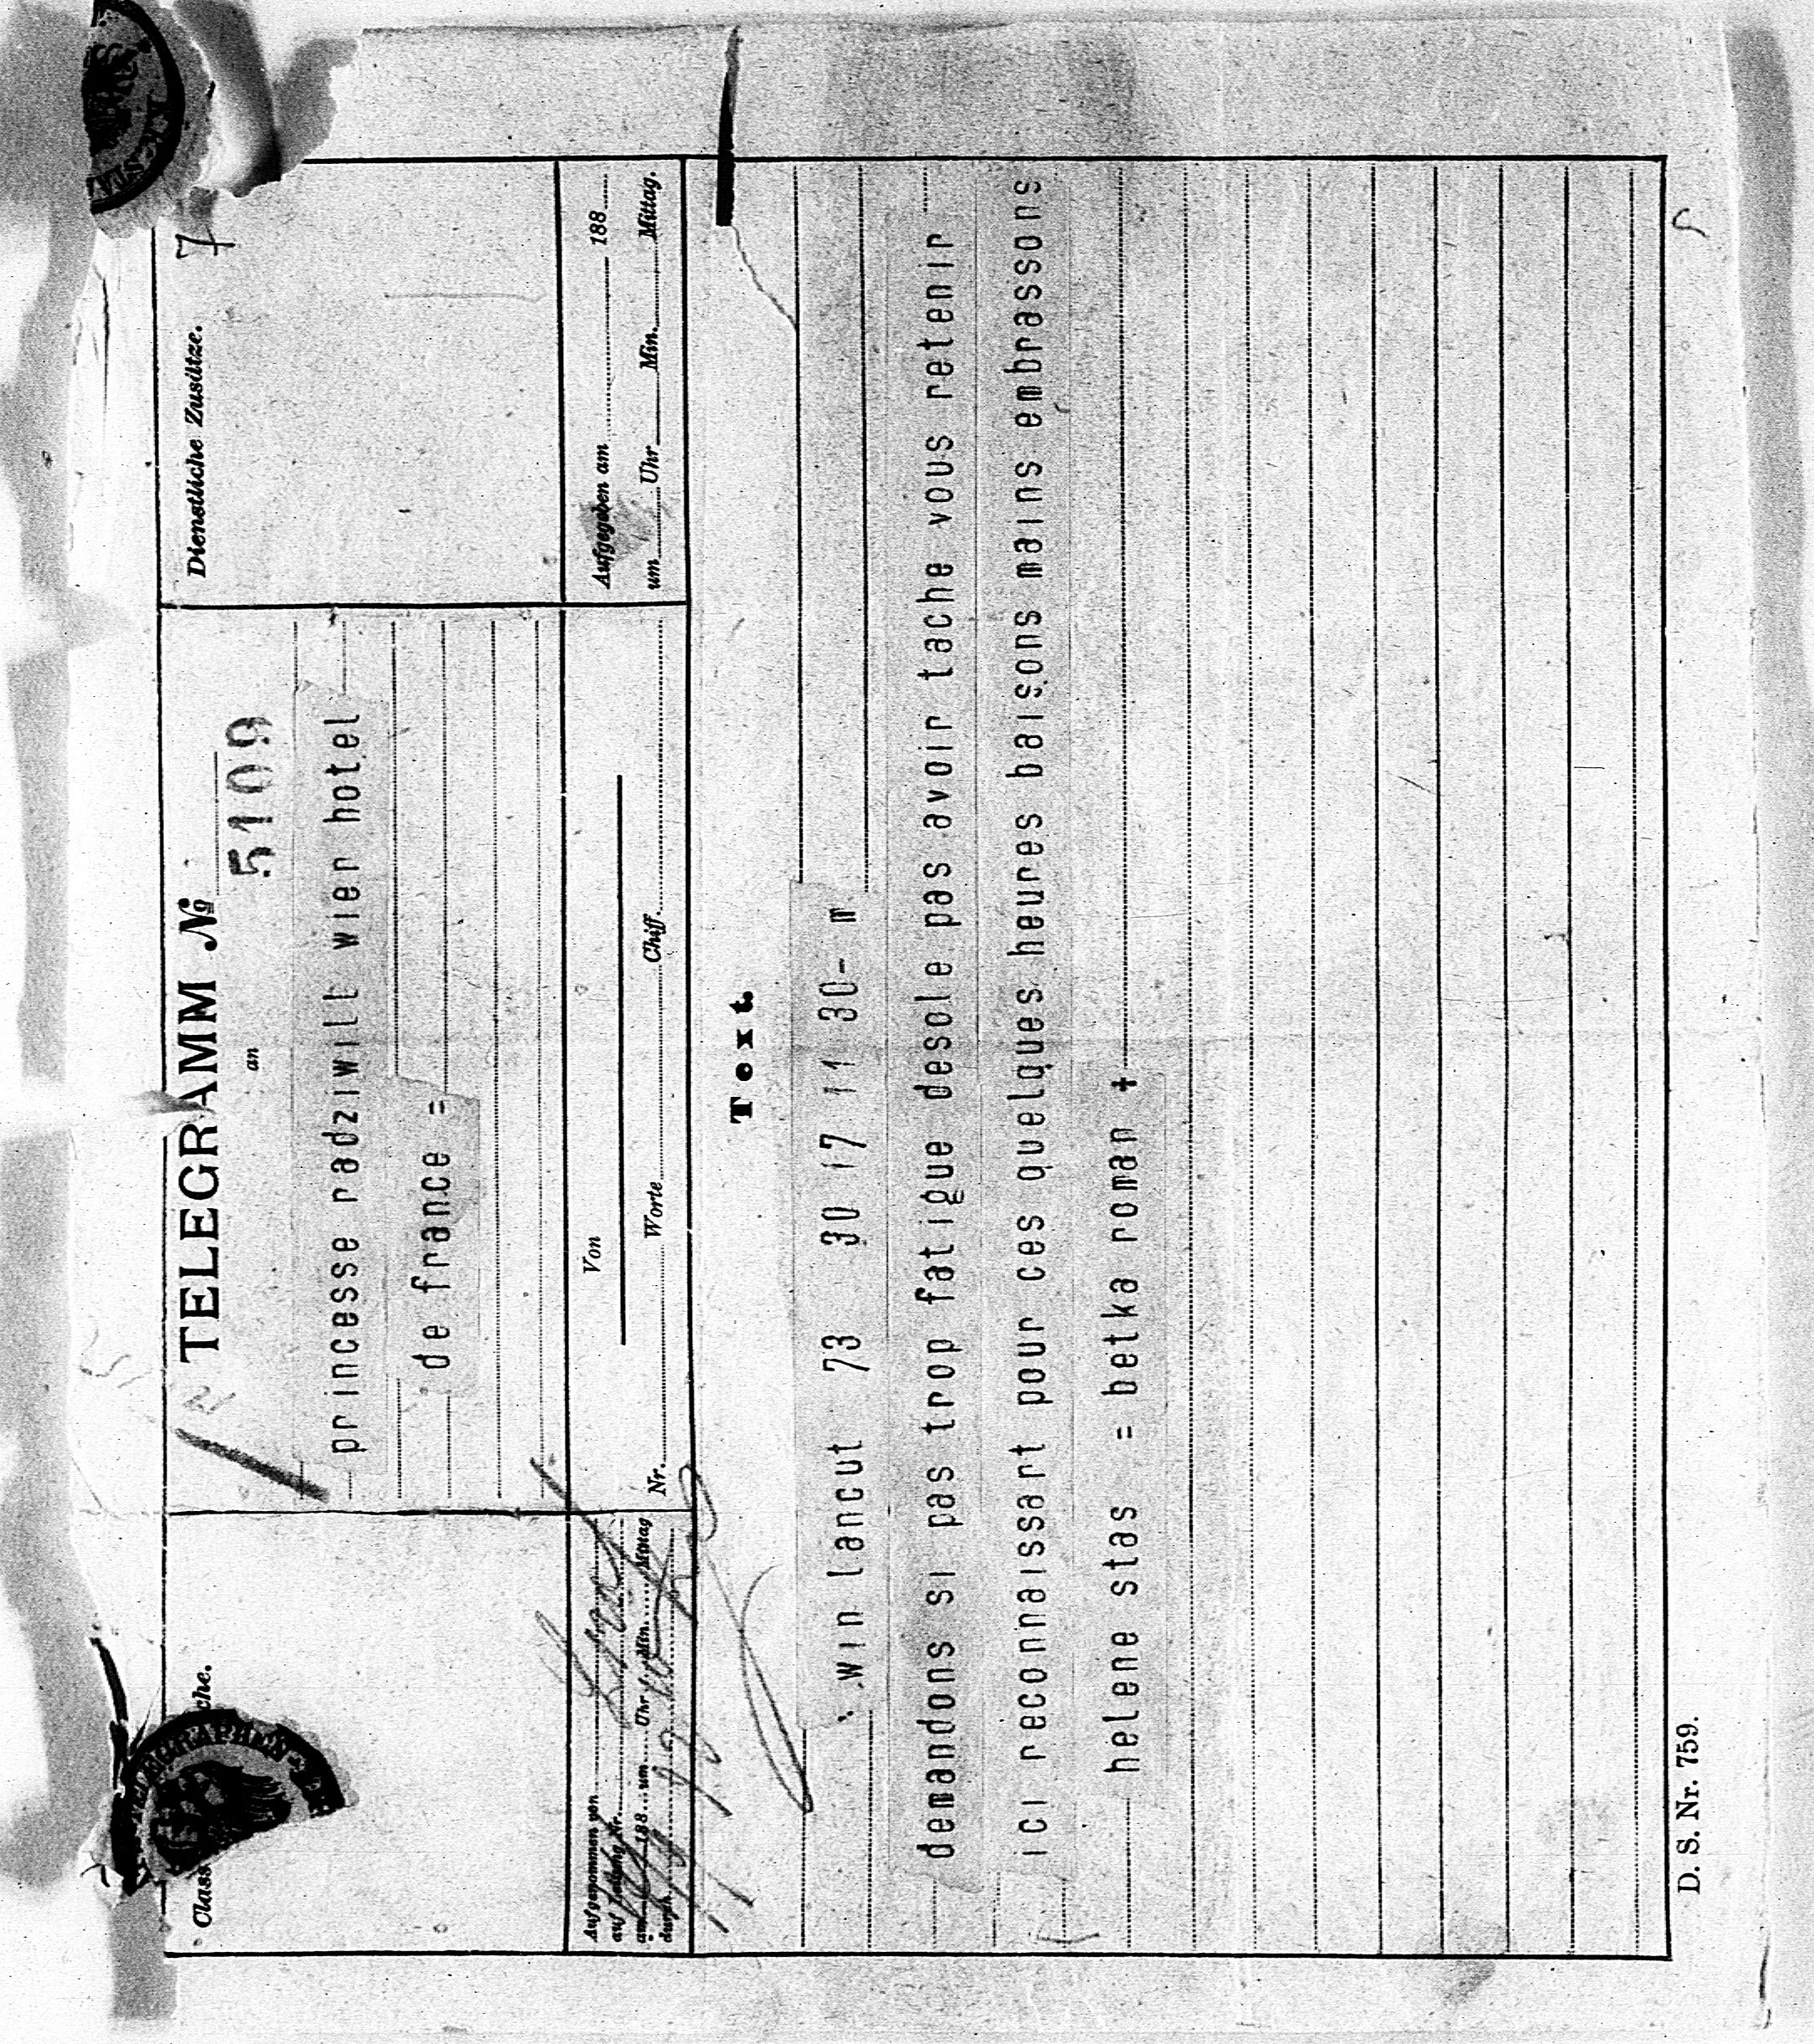 Dienstliche Zusätze.
7
TELEGRAMM №
5109
an
princesse radziwill wier hotel
de france =
Aufgenommen von
auf Leitung Nr.
am 188 um Uhr Min. Mittag
durch
Von
Nr. Worte Chiff.
Aufgegeben am 188
um Uhr Min. Mittag.
Text.
win lancut 73 30 17 11 30- m
demandons si pas trop fatigue desole pas avoir tache vous retenir
ici reconnaissart pour ces quelques heures baisons mains embrassons
helene stas = betka roman +
D. S. Nr. 759.